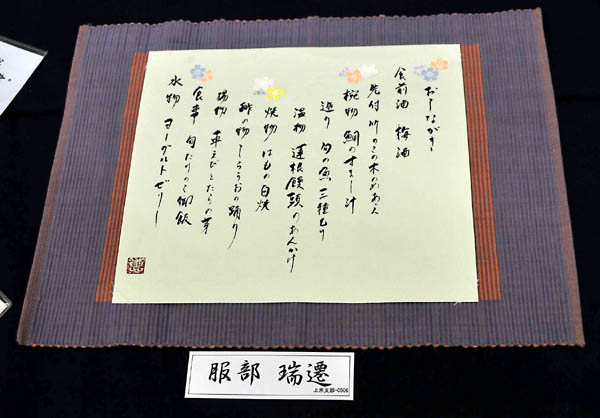 おしながき
食前酒 梅酒
先付 竹のこの木のめあえ
椀物 鯛のすまし汁
造り 旬の魚三種もり
温物 蓮根饅頭のあんかけ
焼物 はもの白焼
酢の物 しらうおの踊り
揚物 車えびとたらの芽
食事 旬たけのこ御飯
水物 ヨーグルトゼリー
服部 瑞遷
上京支部-0506